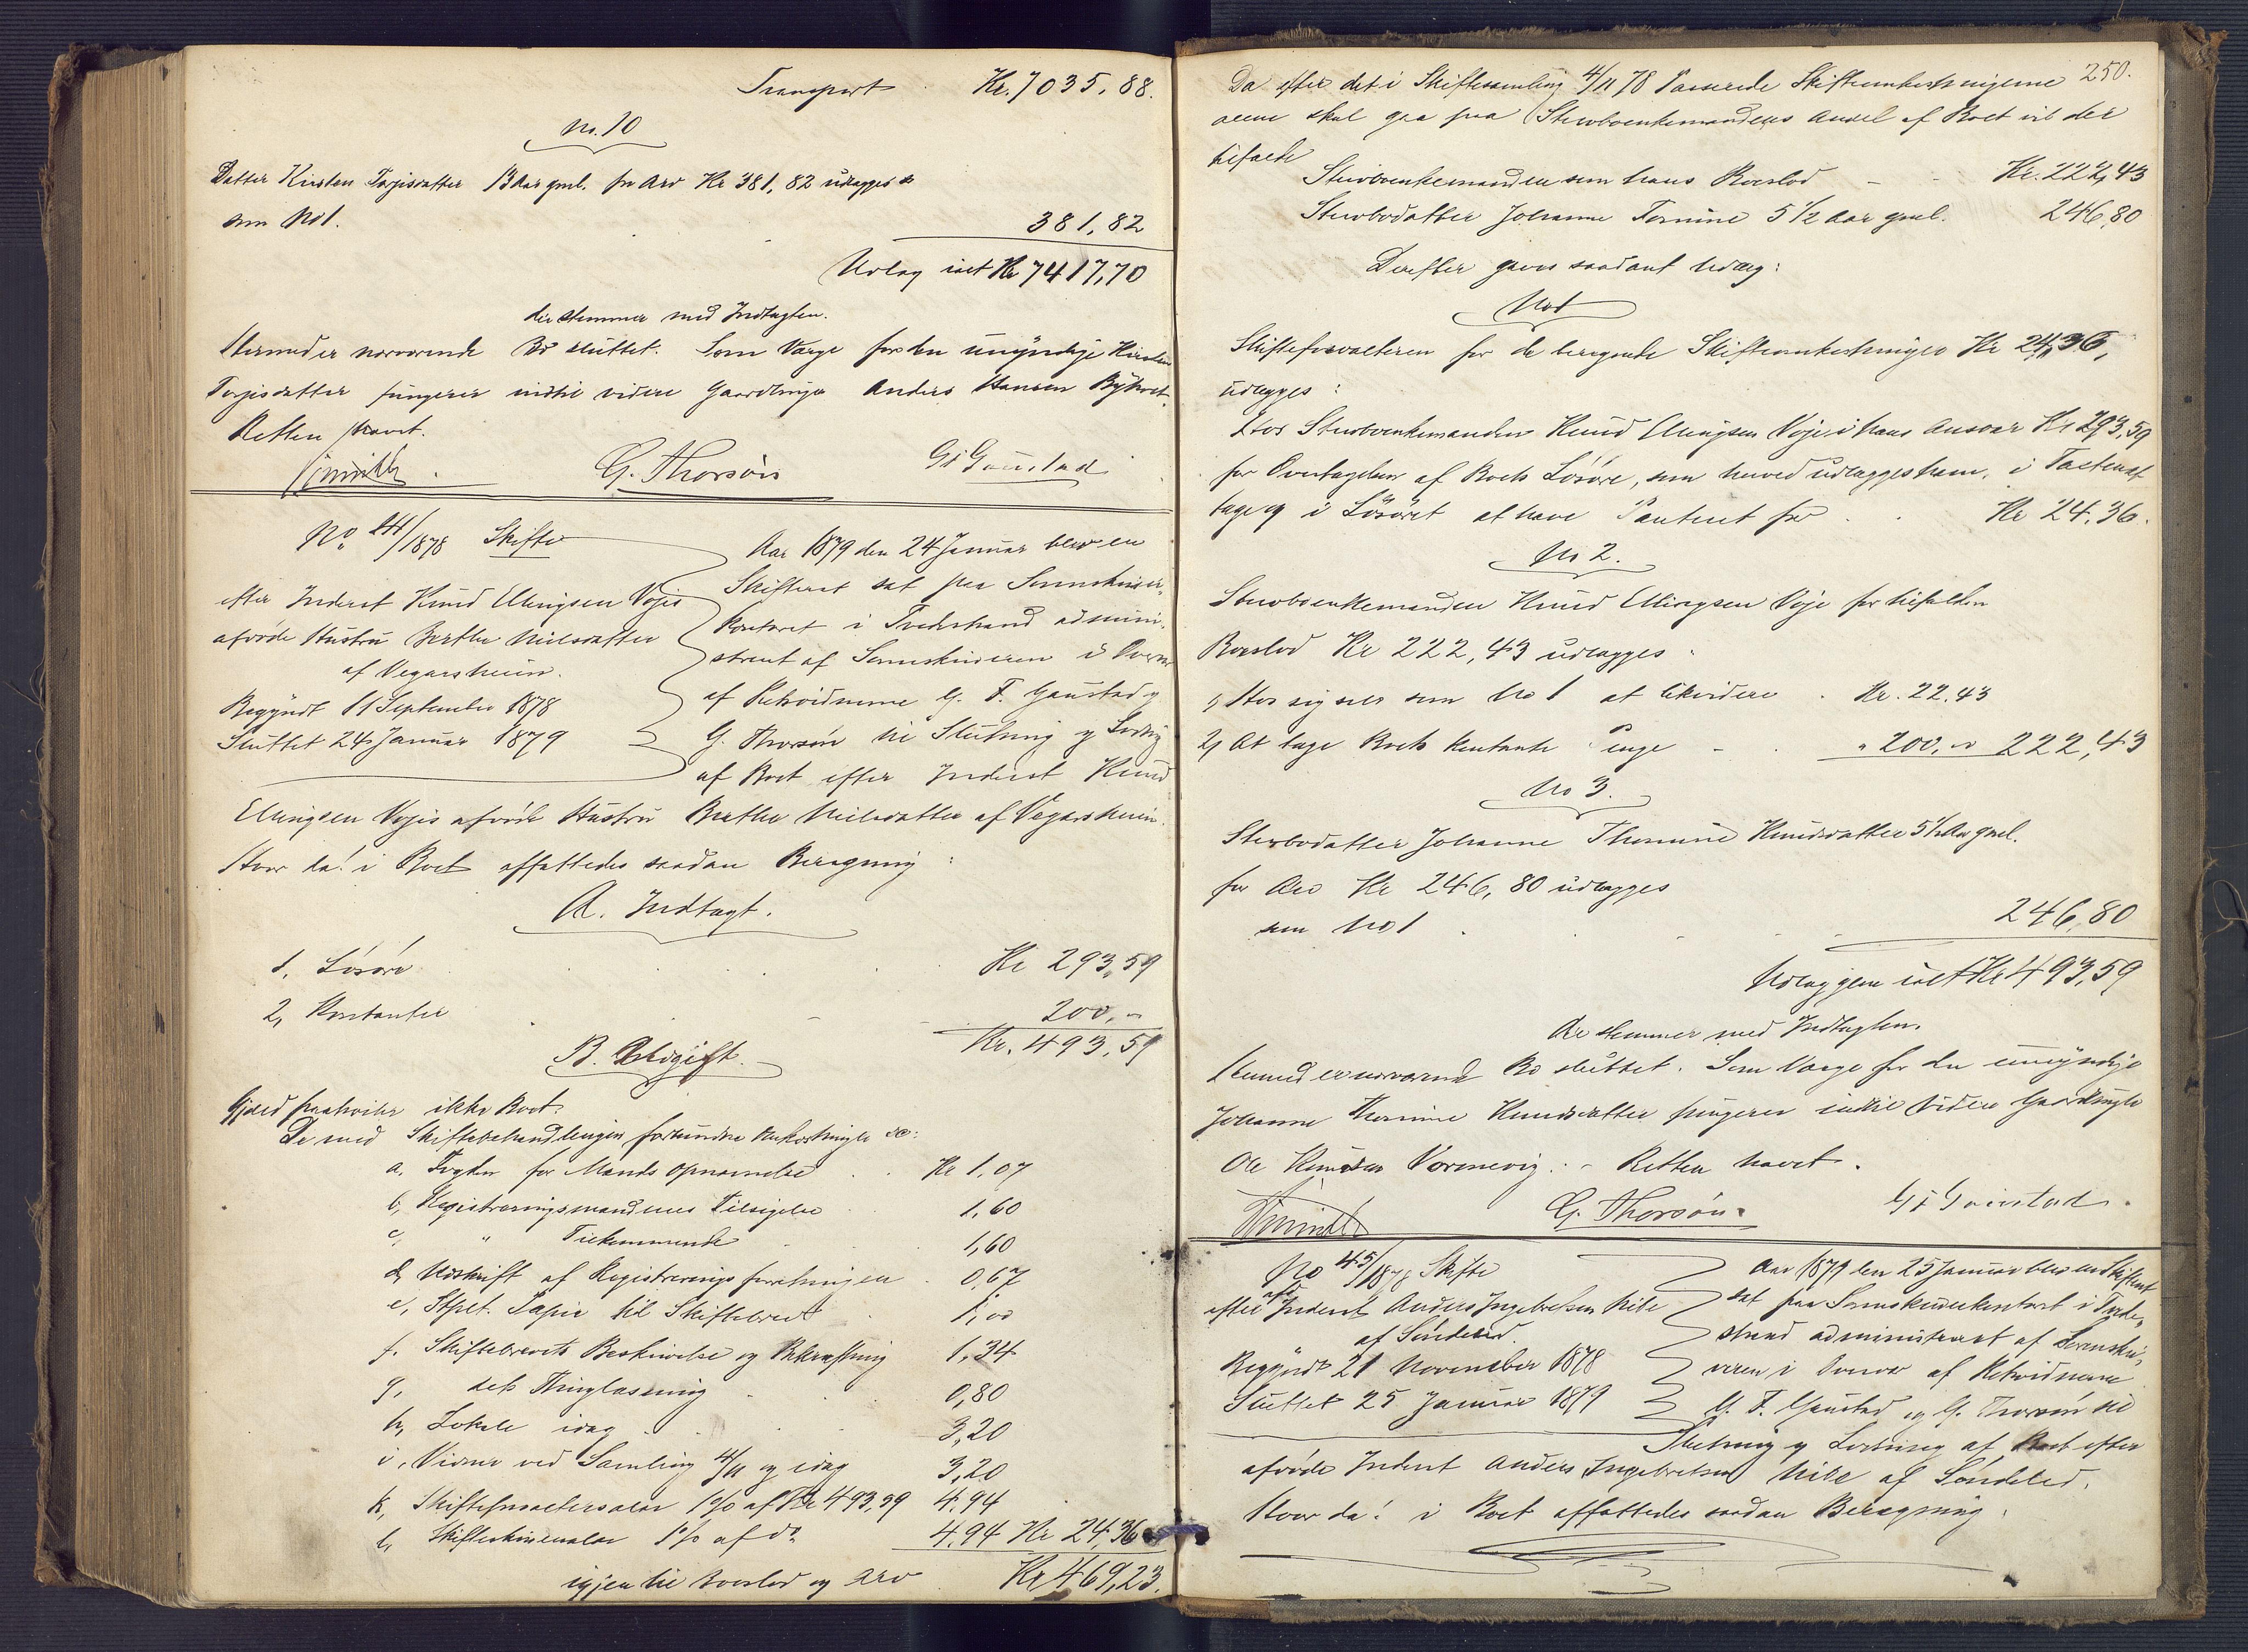 Transport Kr. 7035, 88.
No. 10
Datter Kirsten Torjisdatter 13 Aar gml. for Arv Kr 381, 82 udlægges
som No 1.
381, 82
Udlæg ialt Kr 7417,70
der stemmer med Indtægten.
Hermed er nærværende Bo sluttet. Som Værge for den umyndige Kirsten
Torjisdatter fungerer indtil videre Gaardbruger Anders Hansen
Retten hævet.
G. Thorsön GF Goustad
No 44/1878 Skifte
efter Inderst Knud Ellingsen Vojes
afdöde Hustru Berthe Nielsdatter
af Vegarsheien.
Begyndt 11 September 1878
Sluttet 24 Januar 1879
Aar 1879 den 24 Januar blev en
Skifteret sat paa Sorenskriver-
kontoret i Tvedestrand admini-
streret af Sorenskriveren i Overvær
af Retsvidnerne G. F. Goustad og
G. Thorsön til Slutning og Lodning
af Boet efter Inderst Knud
Ellingsen Vojes afdöde Hustru Berthe Nielsdatter af Vegarsheien.
Hvor da! i Boet affattedes saadan Beregning:
A. Indtægt.
1, Lösöre Kr 293,59
2, Kontanter 200,-
Kr. 493,59
B. Udgift.
Gjæld paahviler ikke Boet.
De med Skiftebehandlingen forbundne Omkostninger ere:
a. Fogden for Mænds Opnævnelse Kr 1,07
b, Registreringsmændenes Tilsigelse 1,60
c, " Tilkommende 1,60
d, Udskrift af Registreringsforretningen 0,67
e, Stplt. Papir til Skiftebrevet 1,00
f. Skiftebrevets Beskrivelse og Bekræftning 1,34
g, dets Thinglæsning 0,80
h, Lokale idag 3,20
i, Vidner ved Samling 4/11 og idag 3,20
k, Skifteforvaltersalær 1% af Kr 493,59 4,94
l, Skifteskriversalær 1% af do 4,94 Kr 24,36
igjen til Boeslod og Arv Kr 469,23.
250.
Da efter det i Skiftesamling 4/11 78 Passerede Skifteomkostningerne
alene skal gaa fra Stervboenkemandens Andel af Boet vil der
tilfalde
Stervboenkemanden som hans Boeslod Kr. 222,43
Stervbodatter Johanne Tomine 5 1/2 Aar gml. 246,80
Derefter gaves saadant Udlæg:
No 1
Skifteforvalteren for de beregnede Skifteomkostninger Kr 24,36,
udlægges:
Hos Stervboenkemanden Knud Ellingsen Voje i hans Ansvar Kr 293,59
for Overtagelsen af Boets Lösöre, som herved udlægges ham, i
og i Lösöret at have Panteret for Kr 24.36.
No 2.
Stervboenkemanden Knud Ellingsen Voje for tilfalden
Boeslod Kr 222,43 udlægges:
1, Hos sig selv som No 1 at likvidere Kr. 22.43
2, At tage Boets kontante Penge " 200,- 222,43
No 3.
Stervbodatter Johanne Thomine Knudsdatter 5 1/2 Aar gml.
for Arv Kr 246,80 udlægges
som No 1 246,80
Udlæggene ialt Kr 493,59
der stemmer med Indtægten.
Hermed er nærværende Bo sluttet. Som Værge for den umyndige
Johanne Thomine Knudsdatter fungerer indtil videre Gaardbruger
Ole Knudsen Vormevig. - Retten hævet.
G. Thorsön. GF Goustad.
No 45/1878 Skifte
efter afd Inderst Anders Ingebretsen
af Söndeled.
Begyndt 21 November 1878
Sluttet 25 Januar 1879
Aar 1879 den 25 Januar blev en Skifteret
sat paa Sorenskriverkontoret i Tvede-
strand administreret af Sorenskri-
veren i Overvær af Retsvidnerne
G. F. Goustad og G. Thorsön til
Slutning og Lodning af Boet efter
afdöde Inderst Anders Ingebretsen af Söndeled.
Hvor da! i Boet affattedes saadan Beregning: